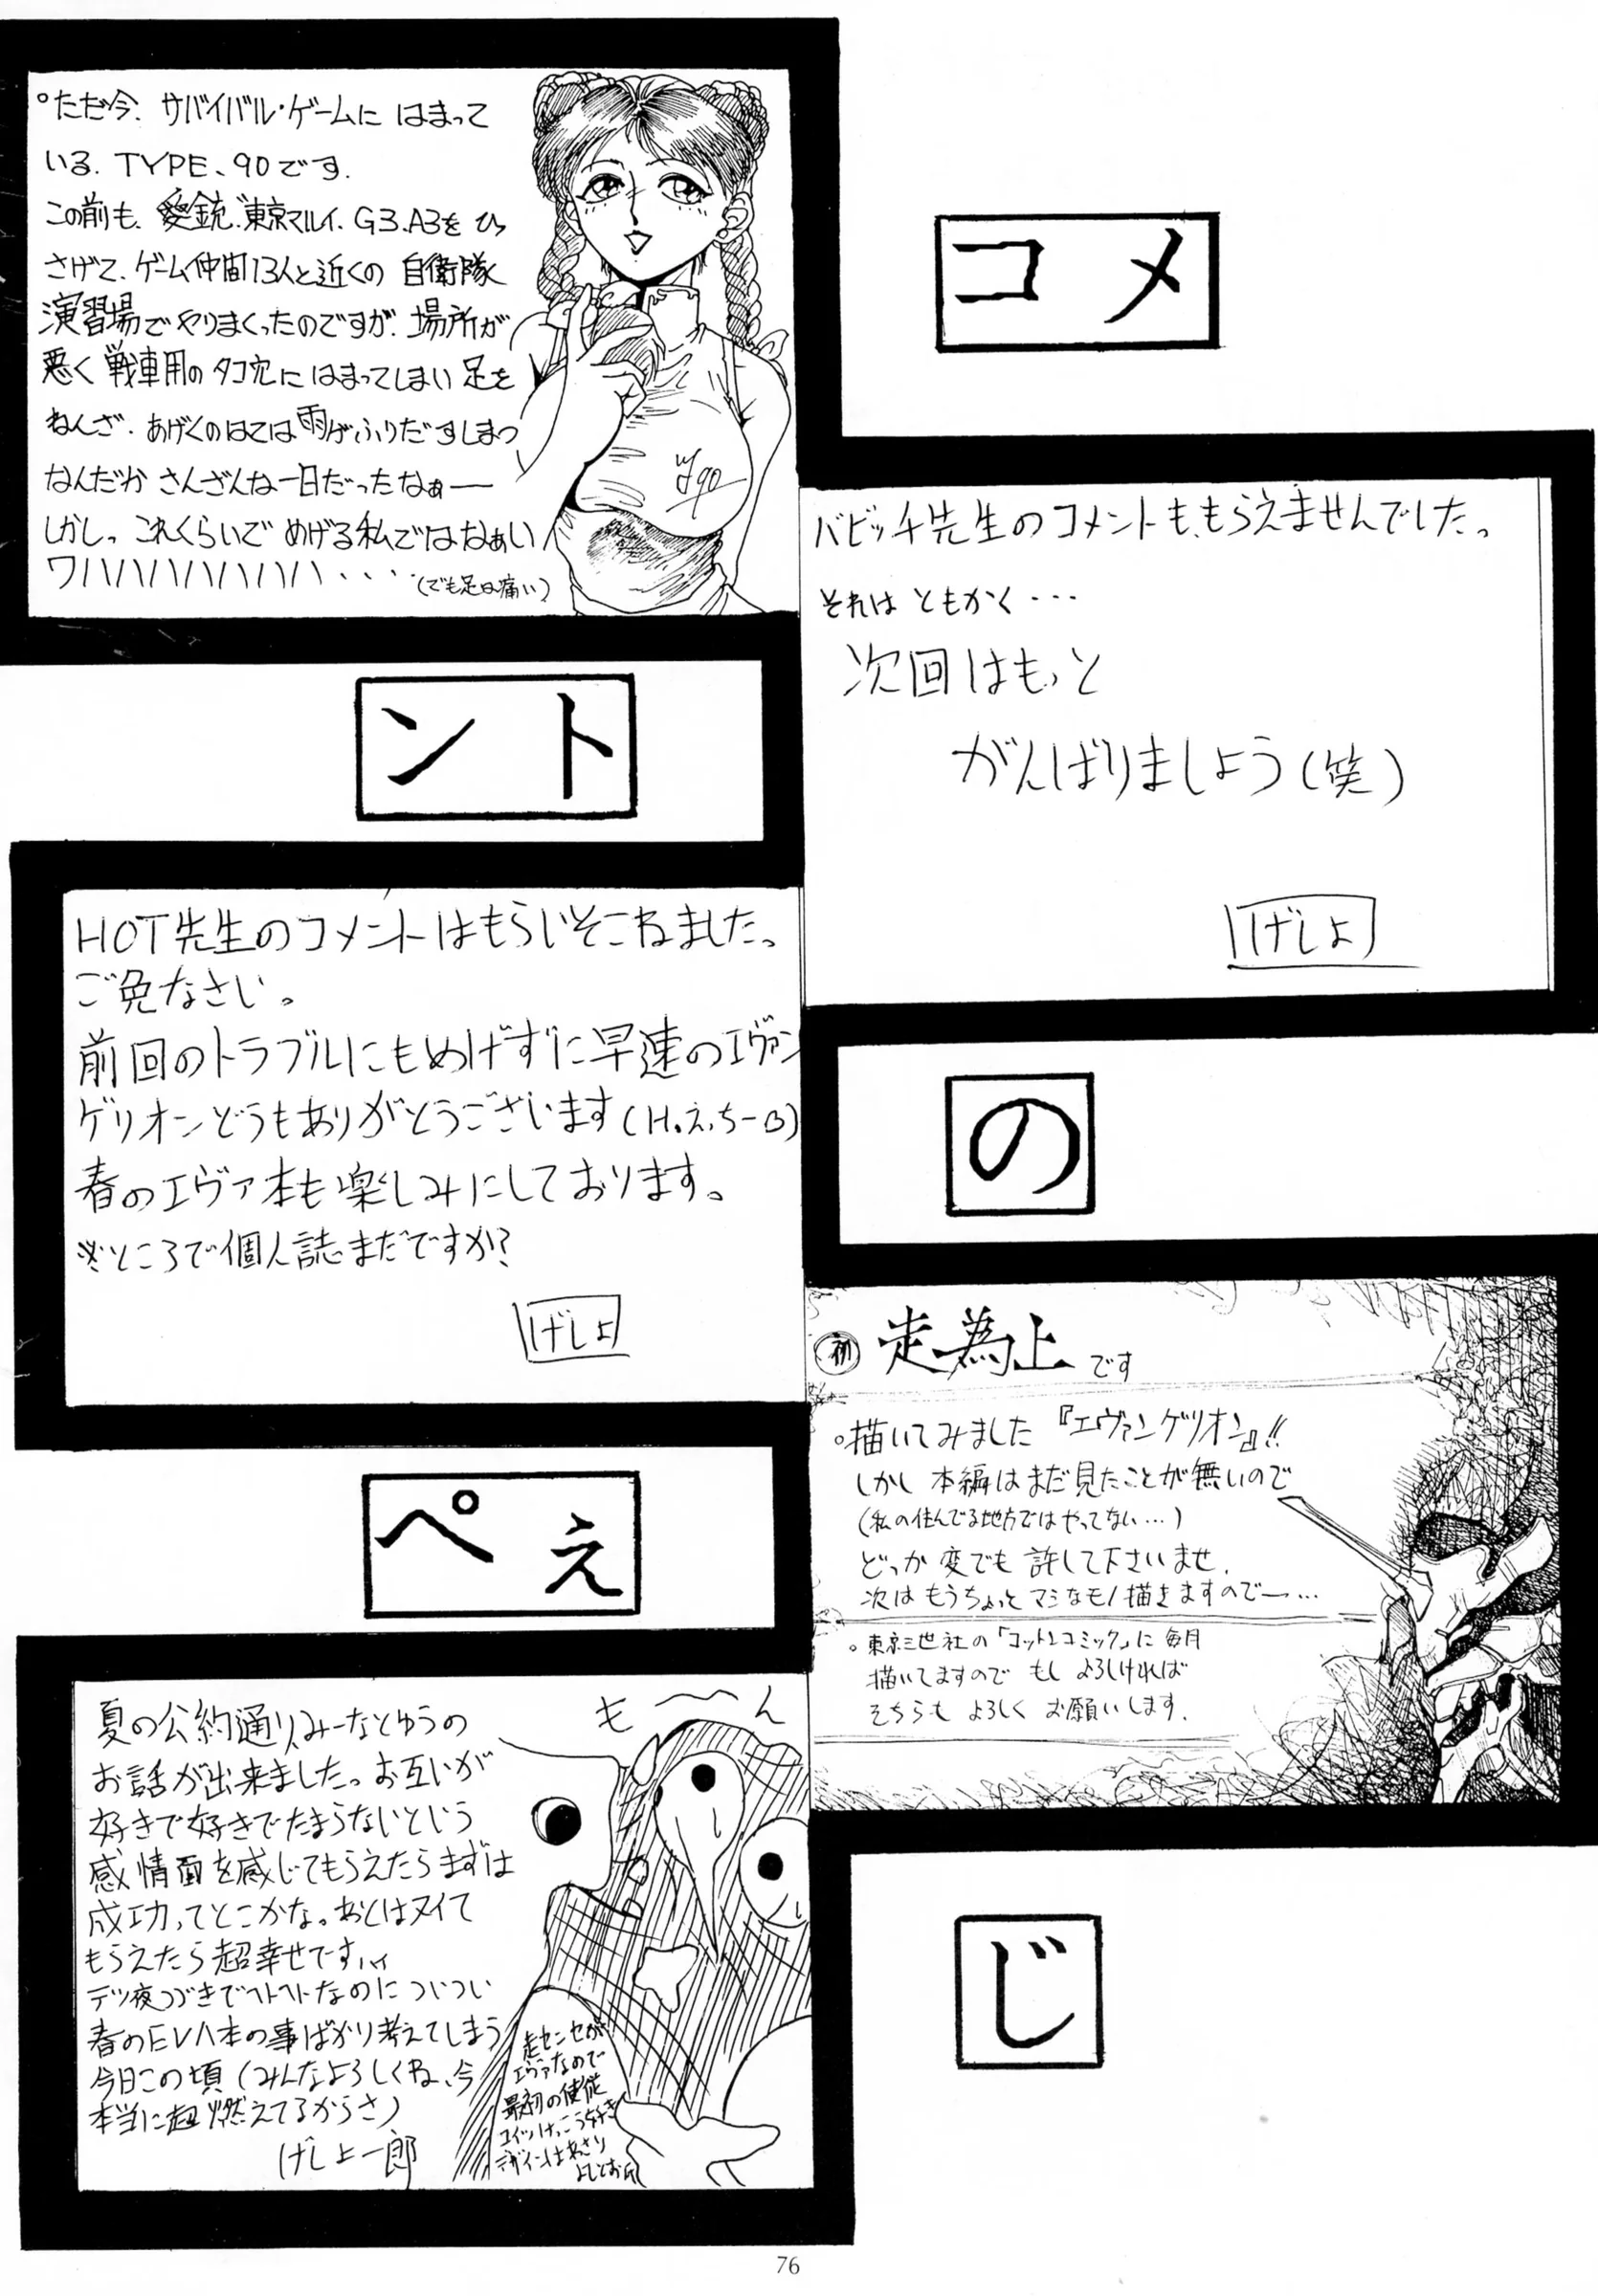 コメ
ント
の
ぺぇ
じ
°ただ今、サバイバル・ゲームに はまって
いる、TYPE、90です。
この前も、愛銃、東京マルイ、G3、A3を ひっ
さげて、ゲーム仲間13人と近くの 自衛隊
演習場でやりまくったのですが、場所が
悪く 戦車用のタコ穴にはまってしまい 足を
ねんざ、あげくのはては雨がふりだすしまつ
なんだか さんざんな一日だったなぁ—
しかしっ これくらいで めげる私ではなぁい
ワハハハハハハハハ・・・・(でも足は痛い)
バビッチ先生のコメントももらえませんでした。
それは ともかく・・・
次回はもっと
がんばりましょう(笑)
げしょ
HOT先生のコメントはもらいそこねました。
ご免なさい。
前回のトラブルにもめげずに早速のエヴァン
ゲリオンどうもありがとうございます
春のエヴァ本も楽しみにしております。
※ところで個人誌まだですか?
げしょ
初 走為上 です
°描いてみました『エヴァンゲリオン』!!
しかし 本編はまだ見たことが無いので
(私の住んでる地方ではやってない…)
どっか 変でも 許して下さいませ、
次は もうちょっと マシなモノ描きますのでー…
°東京三世社の「コットンコミック」に 毎月
描いてますので もし よろしければ
そちらも よろしく お願いします、
夏の公約通りみーなとゆうの
お話が出来ました。お互いが
好きで好きでたまらないという
感情面を感じてもらえたらまずは
成功ってとこかな。あとはヌイて
もらえたら超幸せですハイ
テツ夜つづきでヘトヘトなのについつい
春のEVA本の事ばかり考えてしまう
今日この頃(みんなよろしくね、今
本当に超燃えてるからさ)
げしょ一郎
も〜ん
走センセが
エヴァなので
最初の使徒
コイツけっこう好き
デザインはあさり
よしとお氏
76